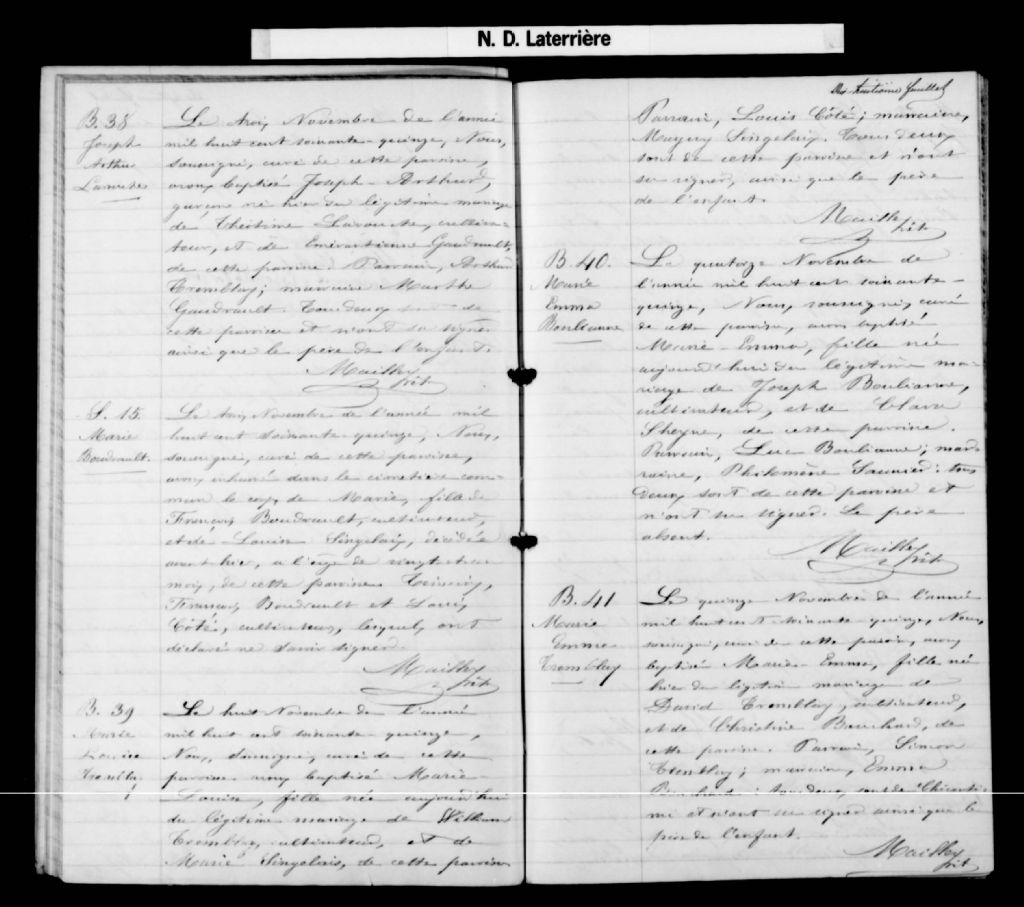 N. D. Laterrière
B. 38
Joseph
Arthur
Le trois Novembre de l'année
mil huit cent soixante-quinze, Nous,
soussigné, curé de cette paroisse,
avons baptisé Joseph-Arthur,
garçon né hier du légitime mariage
de Théotime Lavoute, cultiva-
teur, et de Emérentienne Gaudrault,
de cette paroisse. Parrain, Arthur
Tremblay; marraine Marthe
Gaudrault. Tous deux sont de
cette paroisse et n'ont su signer
ainsi que le père de l'enfant.
Mailley
ptr
S. 15.
Marie
Boudrault.
Le trois Novembre de l'année mil
huit cent soixante-quinze, Nous,
soussigné, curé de cette paroisse,
avons inhumé dans le cimetière com-
mun le corps de Marie, fille de
François Boudrault, cultivateur,
et de Louise Singelais, décédée
avant hier, a l'age de vingt
mois, de cette paroisse. Témoins,
François Boudrault et Louis
Côté, cultivateurs, lesquels ont
déclaré ne savoir signer.
Mailley
ptr
B. 39
Marie
Louise
Trembla.
Le huit Novembre de l'année
mil huit cent soixante-quinze,
Nous, soussigné, curé de cette
paroisse avons baptisé Marie-
Louise, fille née aujourd'hui
du légitime mariage de William
Tremblay, cultivateur, et de
Marie Singelais, de cette paroisse
Dix huitième feuillet
Parrain, Louis Côté; marraine,
Singelais. Tous deux
sont de cette paroisse et n'ont
su signer, ainsi que le père
de l'enfant.
Mailley
ptr
B. 40.
Marie
Emma
Boulianne
Le quatorze Novembre de
l'année mil huit cent soixante-
quinze, Nous, soussigné, curé
de cette paroisse, avons baptisé
Marie-Emma, fille née
aujourd'hui du légitime ma-
riage de Joseph Boulianne,
cultivateur, et de Clara
de cette paroisse.
Parrain, Luc Boulianne; mar-
raine, Philomène Saunier: tous
deux sont de cette paroisse et
n'ont su signer. Le père
absent.
Mailley
ptr
B. 41
Marie
Emma
Tremblay
Le quinze Novembre de l'année
mil huit cent soixante-quinze, Nous,
soussigné, curé de cette paroisse, avons
baptisé Marie-Emma, fille née
hier du légitime mariage de
David Tremblay, cultivateur,
et de Christine Bouchard, de
cette paroisse. Parrain, Simon
Tremblay; marraine, Emma
Bouchard: tous deux sont de Chicouti-
mi et n'ont su signer ainsi que le
père de l'enfant.
Mailley
ptr